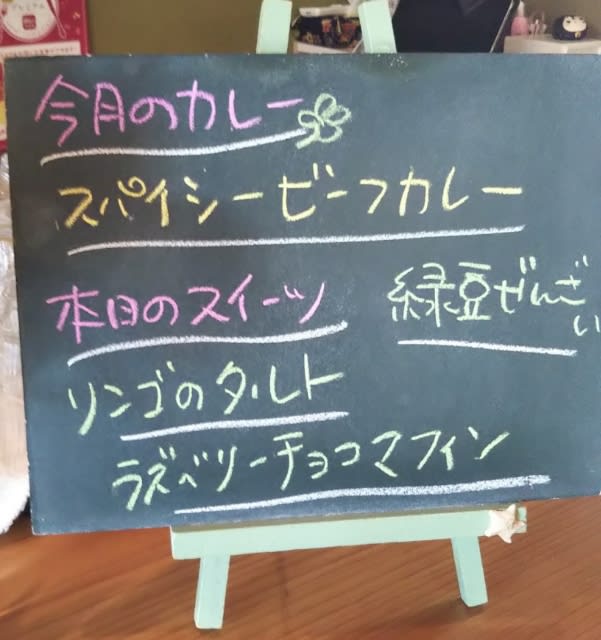 今月のカレー
スパイシービーフカレー
本日のスイーツ
緑豆ぜんざい
リンゴのタルト
ラズベリーチョコマフィン